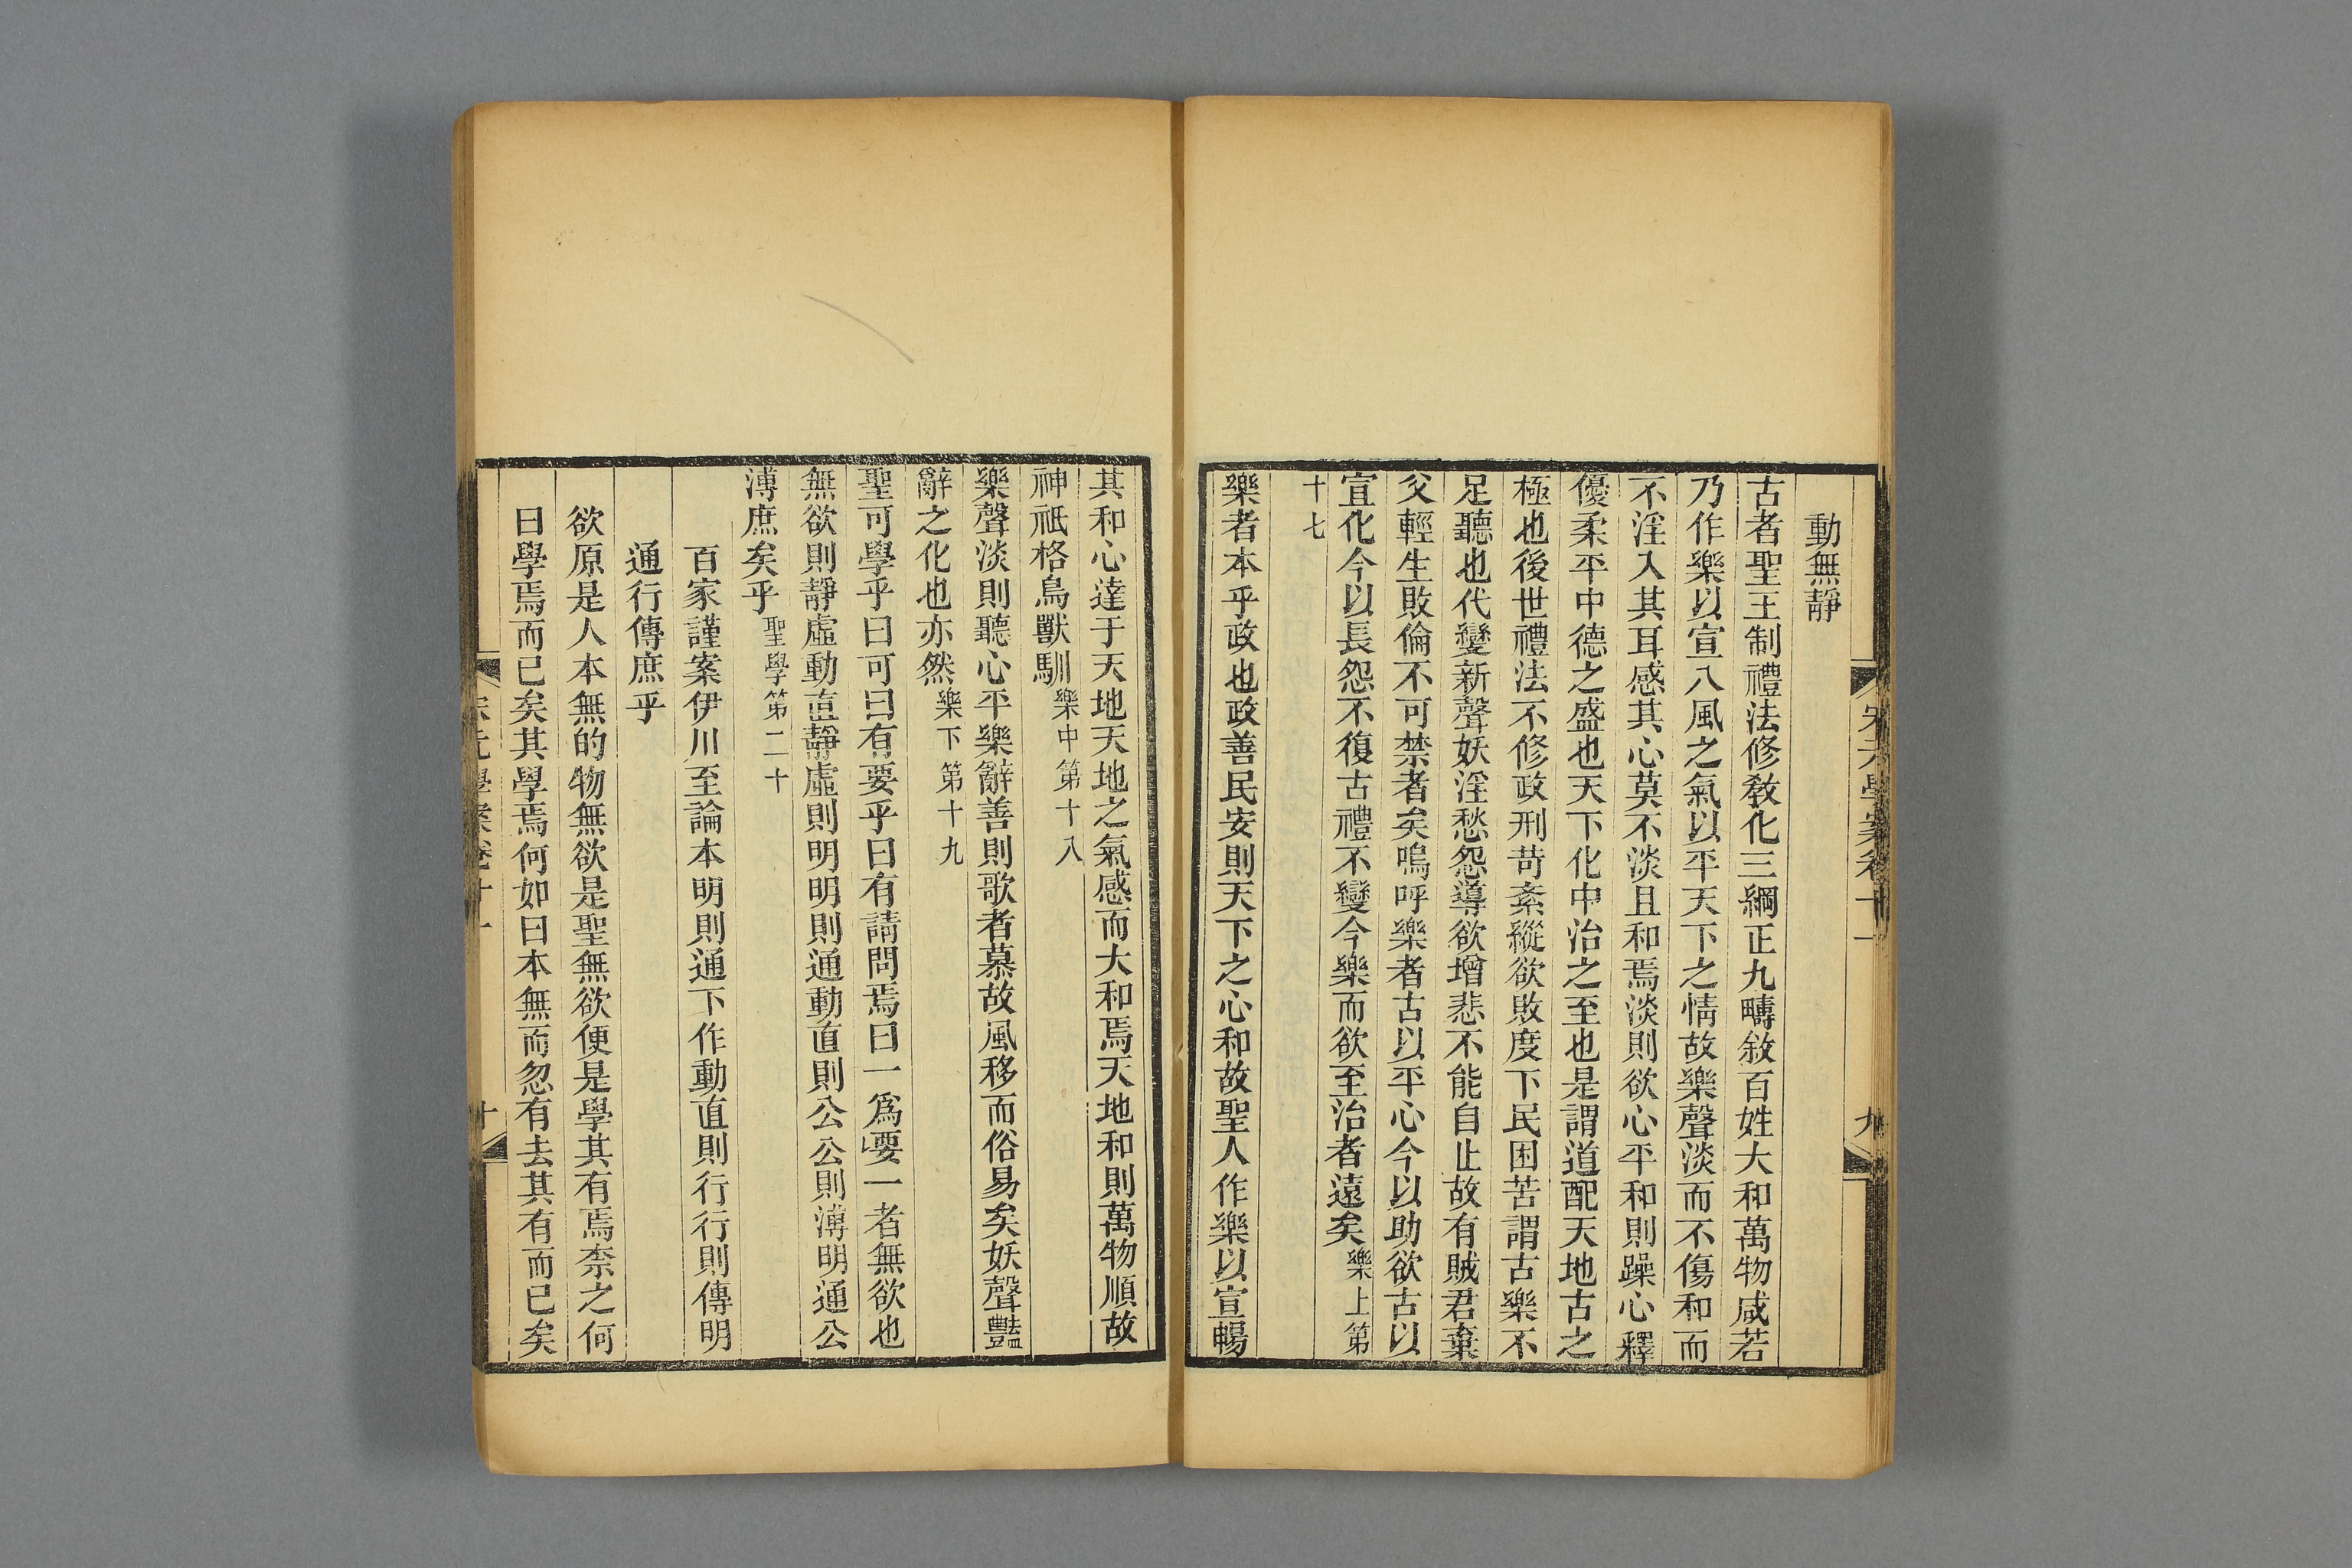 動無靜
古者聖王制禮法修敎化三綱正九疇敘百姓大和萬物咸若
乃作樂以宣八風之氣以平天下之情故樂聲淡而不傷和而
不淫入其耳感其心莫不淡且和焉淡則欲心平和則躁心釋
優柔平中德之盛也天下化中治之至也是謂道配天地古之
極也後世禮法不修政刑苛紊縱欲敗度下民困苦謂古樂不
足聽也代變新聲妖淫愁怨導欲增悲不能自止故有賊君棄
父輕生敗倫不可禁者矣嗚呼樂者古以平心今以助欲古以
宣化今以長怨不復古禮不變今樂而欲至治者遠矣樂上第
十七
樂者本乎政也政善民安則天下之心和故聖人作樂以宣暢
其和心達于天地天地之氣感而大和焉天地和則萬物順故
神祗格鳥獸馴樂中第十八
樂聲淡則聽心平樂辭善則歌者慕故風移而俗易矣妖聲豔
辭之化也亦然樂下第十九
聖可學乎曰可曰有要乎曰有請問焉曰一爲要一者無欲也
無欲則靜虛動直靜虛則明明則通動直則公公則溥明通公
溥庶矣乎聖學第二十
百家謹案伊川至論本明則通下作動直則行行則傳明
通行傳庶乎
欲原是人本無的物無欲是聖無欲便是學其有焉柰之何
曰學焉而已矣其學焉何如曰本無而忽有去其有而已矣
宋元學案卷十一
十